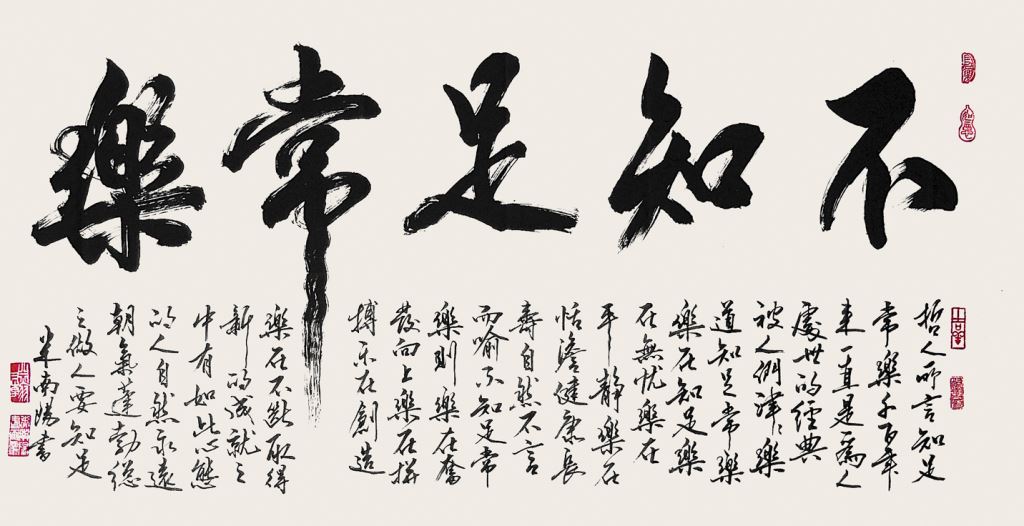 不知足常樂
哲人所言知足
常樂千百年
来一直是為人
處世的經典
被人們津々樂
道知足常樂
樂在知足樂
在無忧樂在
平静樂在
恬澹健康長
壽自然不言
而喻不知足常
樂則樂在奮
發向上樂在拼
搏乐在創造
樂在不断取得
新的成就之
中有如此心態
的人自然永遠
朝氣蓬勃總
之做人要知足
米南陽書